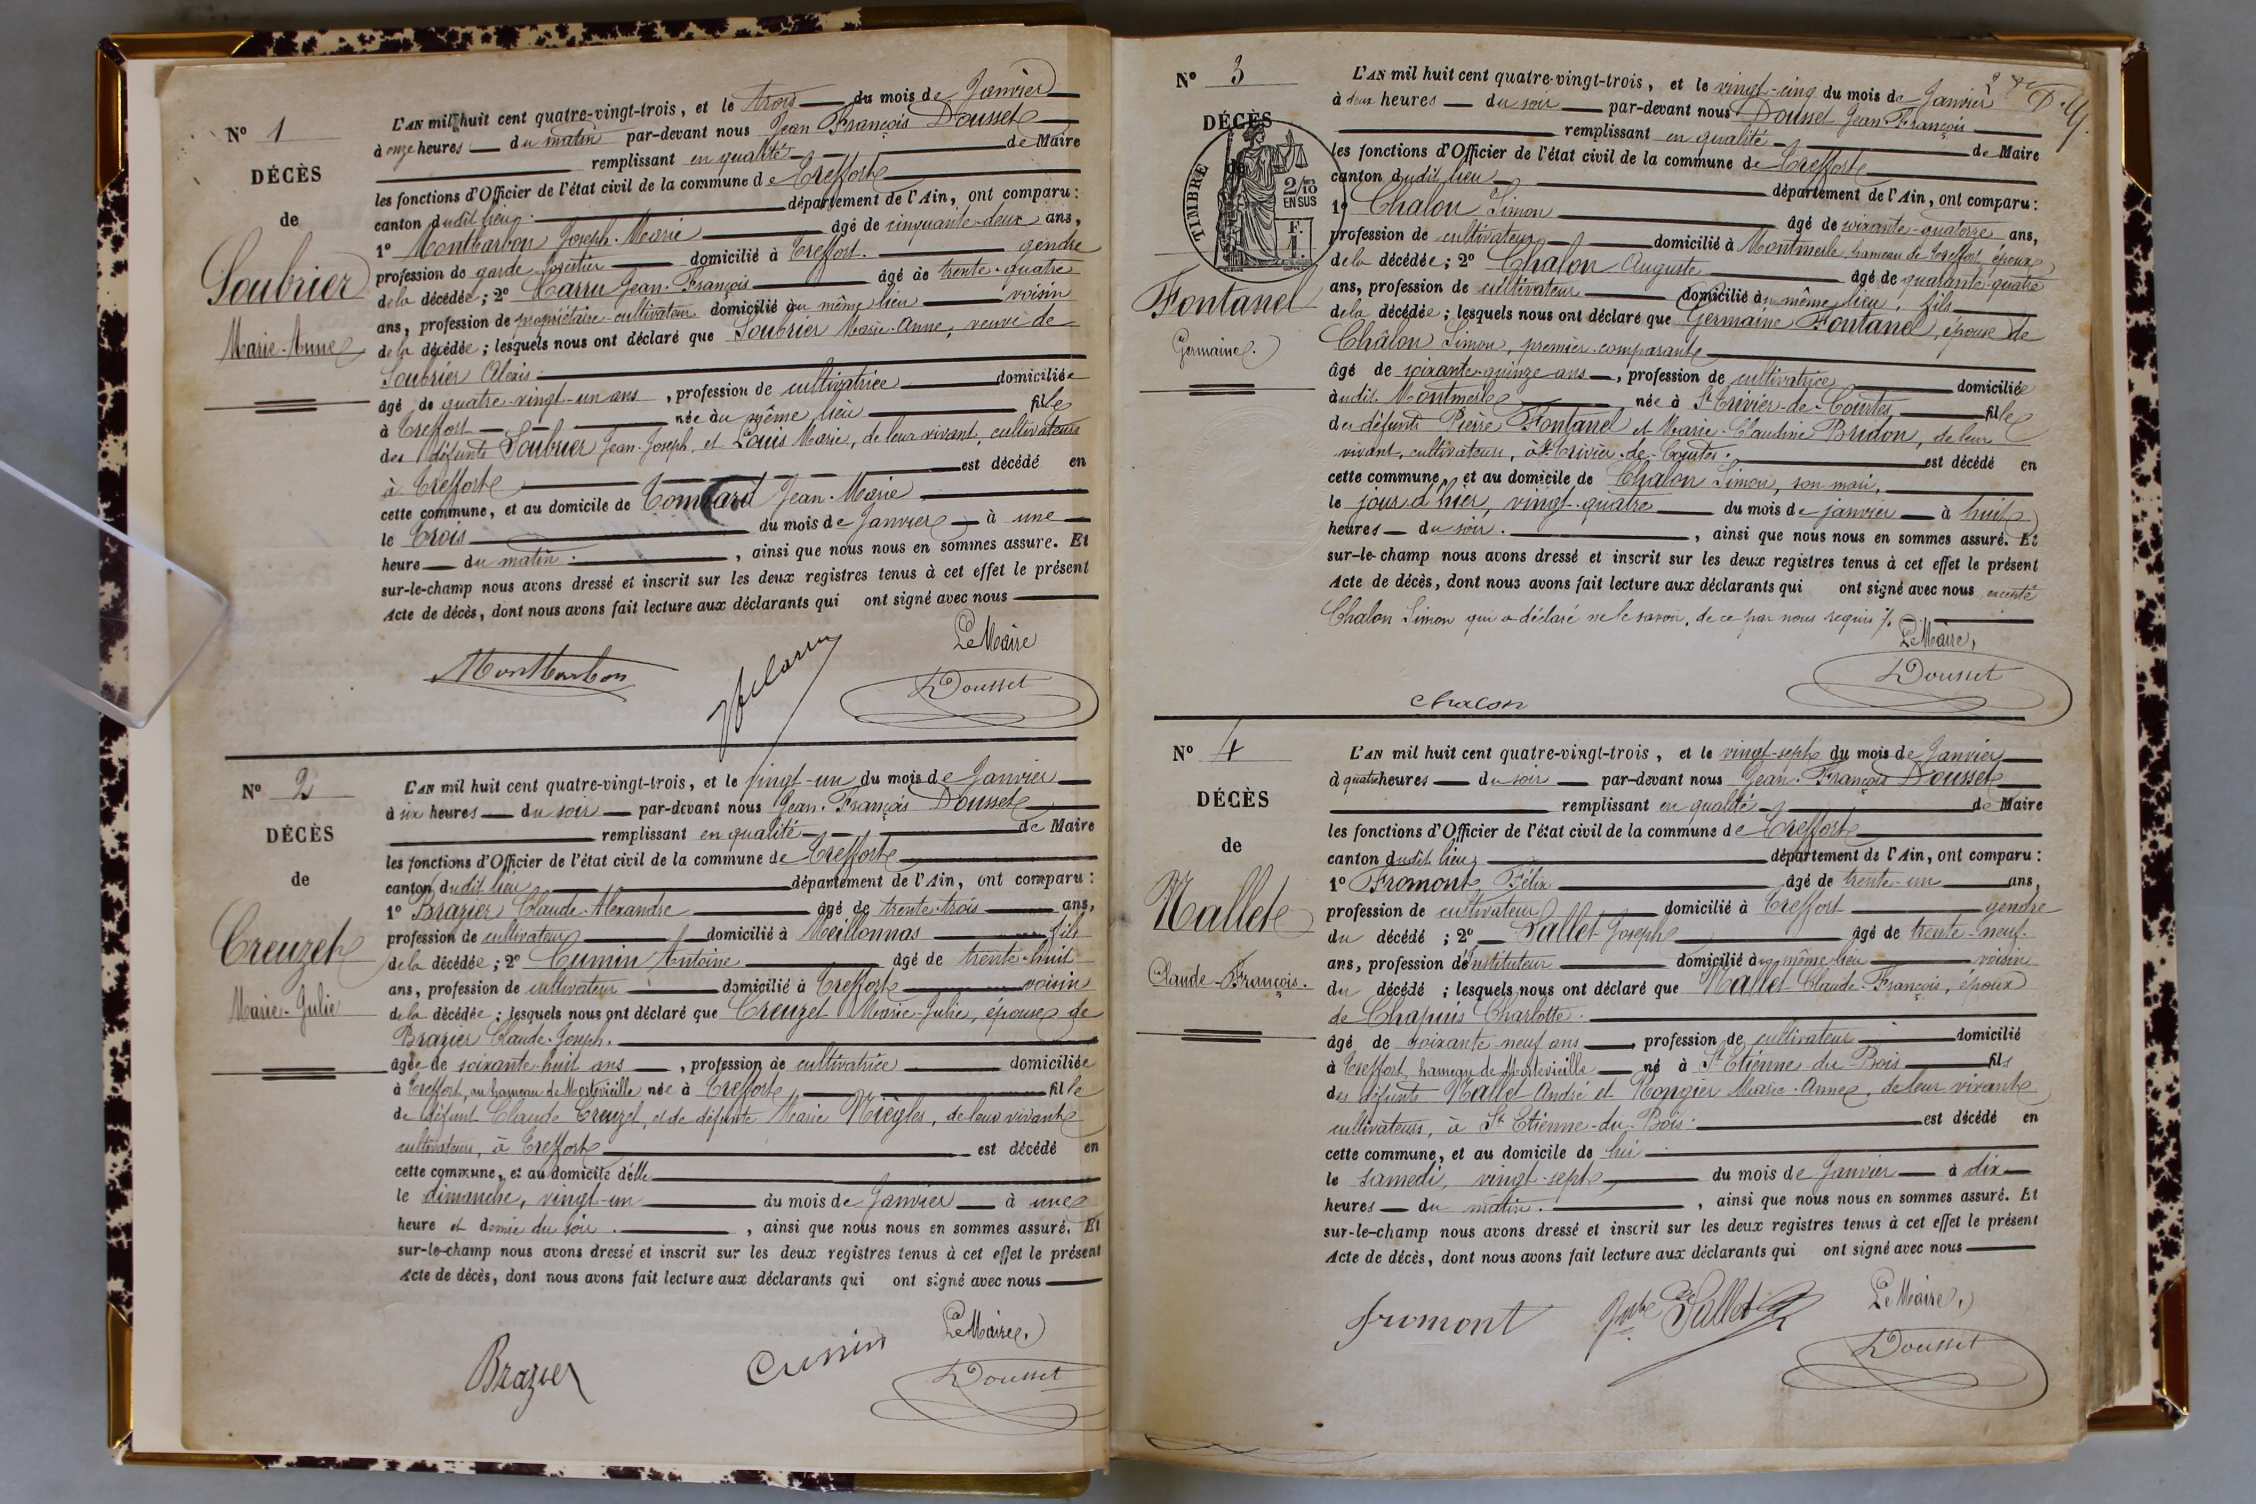 N° 1
DÉCÈS
de
Soubrier
Marie-Anne
L'AN mil huit cent quatre-vingt-trois, et le trois du mois de Janvier
à onze heures du matin par-devant nous Jean François Dousset
remplissant en qualité de Maire
les fonctions d'Officier de l'état civil de la commune de Treffort
canton dudit lieu département de l'Ain, ont comparu :
1° Montbarbon Joseph-Marie âgé de cinquante-deux ans,
profession de garde forestier domicilié à Treffort gendre
de la décédée ; 2° Jean-François âgé de trente-quatre
ans, profession de propriétaire-cultivateur domicilié au même lieu voisin
de la décédée ; lesquels nous ont déclaré que Soubrier Marie-Anne, veuve de
Soubrier Alexis
âgé de quatre-vingt-un ans, profession de cultivatrice domiciliée
à Treffort née au même lieu fille
des défunts Soubrier Jean-Joseph et Louis Marie, de leur vivant cultivateurs
à Treffort est décédé en
cette commune, et au domicile de Jean-Marie
le trois du mois de Janvier à une
heure du matin, ainsi que nous nous en sommes assuré. Et
sur-le-champ nous avons dressé et inscrit sur les deux registres tenus à cet effet le présent
Acte de décès, dont nous avons fait lecture aux déclarants qui ont signé avec nous
Le Maire
Montbarbon
Dousset
N° 2
DÉCÈS
de
Creuzet
Marie-Julie
L'AN mil huit cent quatre-vingt-trois, et le vingt-un du mois de Janvier
à six heures du soir par-devant nous Jean-François Dousset
remplissant en qualité de Maire
les fonctions d'Officier de l'état civil de la commune de Treffort
canton dudit lieu département de l'Ain, ont comparu :
1° Brazier Claude-Alexandre âgé de trente-trois ans,
profession de cultivateur domicilié à Meillonnas fils
de la décédée ; 2° Cumin Antoine âgé de trente-huit
ans, profession de cultivateur domicilié à Treffort voisin
de la décédée ; lesquels nous ont déclaré que Creuzet Marie-Julie, épouse de
Brazier Claude-Joseph.
âgée de soixante-huit ans, profession de cultivatrice domiciliée
à Treffort, au hameau de Mortevieille née à Treffort fille
de défunt Claude Creuzet, et de défunte Marie Niègles, de leur vivant
cultivateurs, à Treffort est décédé en
cette commune, et au domicile d'elle
le dimanche, vingt-un du mois de Janvier à une
heure et demie du soir, ainsi que nous nous en sommes assuré. Et
sur-le-champ nous avons dressé et inscrit sur les deux registres tenus à cet effet le présent
Acte de décès, dont nous avons fait lecture aux déclarants qui ont signé avec nous
Le Maire,
Brazier
Cumin
Dousset
N° 3
DÉCÈS
de
TIMBRE
2/10
EN SUS
F.
1
Fontanel
Germaine.
L'AN mil huit cent quatre-vingt-trois, et le vingt-cinq du mois de Janvier
à deux heures du soir par-devant nous Dousset Jean-François
remplissant en qualité de Maire
les fonctions d'Officier de l'état civil de la commune de Treffort
canton dudit lieu département de l'Ain, ont comparu :
1° Chalon Simon âgé de soixante-quatorze ans,
profession de cultivateur domicilié à Montmerle, hameau de Treffort, époux
de la décédée ; 2° Chalon Auguste âgé de quarante-quatre
ans, profession de cultivateur domicilié au même lieu, fils
de la décédée ; lesquels nous ont déclaré que Germaine Fontanel, épouse de
Châlon Simon, premier comparant
âgé de soixante-quinze ans, profession de cultivatrice domiciliée
audit Montmerle née à St Trivier-de-Courtes, fille
des défunts Pierre Fontanel et Marie-Claudine Bridon, de leur
vivant, cultivateurs, à St Trivier-de-Courtes. est décédé en
cette commune, et au domicile de Chalon Simon, son mari,
le jour d'hier, vingt-quatre du mois de janvier à huit
heures du soir., ainsi que nous nous en sommes assuré. Et
sur-le-champ nous avons dressé et inscrit sur les deux registres tenus à cet effet le présent
Acte de décès, dont nous avons fait lecture aux déclarants qui ont signé avec nous excepté
Chalon Simon qui a déclaré ne le savoir, de ce par nous requis
Le Maire,
Dousset
Chalon
N° 4
DÉCÈS
de
Mallet
Claude-François.
L'AN mil huit cent quatre-vingt-trois, et le vingt-sept du mois de Janvier
à quatre heures du soir par-devant nous Jean-François Dousset
remplissant en qualité de Maire
les fonctions d'Officier de l'état civil de la commune de Treffort
canton dudit lieu département de l'Ain, ont comparu :
1° Fromont Félix âgé de trente-un ans,
profession de cultivateur domicilié à Treffort gendre
du décédé ; 2° Sallet Joseph âgé de trente-neuf
ans, profession d'instituteur domicilié au même lieu voisin
du décédé ; lesquels nous ont déclaré que Mallet Claude-François, époux
de Chapuis Charlotte.
âgé de soixante-neuf ans, profession de cultivateur domicilié
à Treffort, hameau de Mortevieille né à St Etienne du Bois fils
des défunts Mallet André et Rongier Marie-Anne, de leur vivant
cultivateurs, à St Etienne-du-Bois. est décédé en
cette commune, et au domicile de lui
le samedi, vingt-sept du mois de Janvier à dix
heures du matin., ainsi que nous nous en sommes assuré. Et
sur-le-champ nous avons dressé et inscrit sur les deux registres tenus à cet effet le présent
Acte de décès, dont nous avons fait lecture aux déclarants qui ont signé avec nous
Le Maire,
fromont
Sallet
Dousset